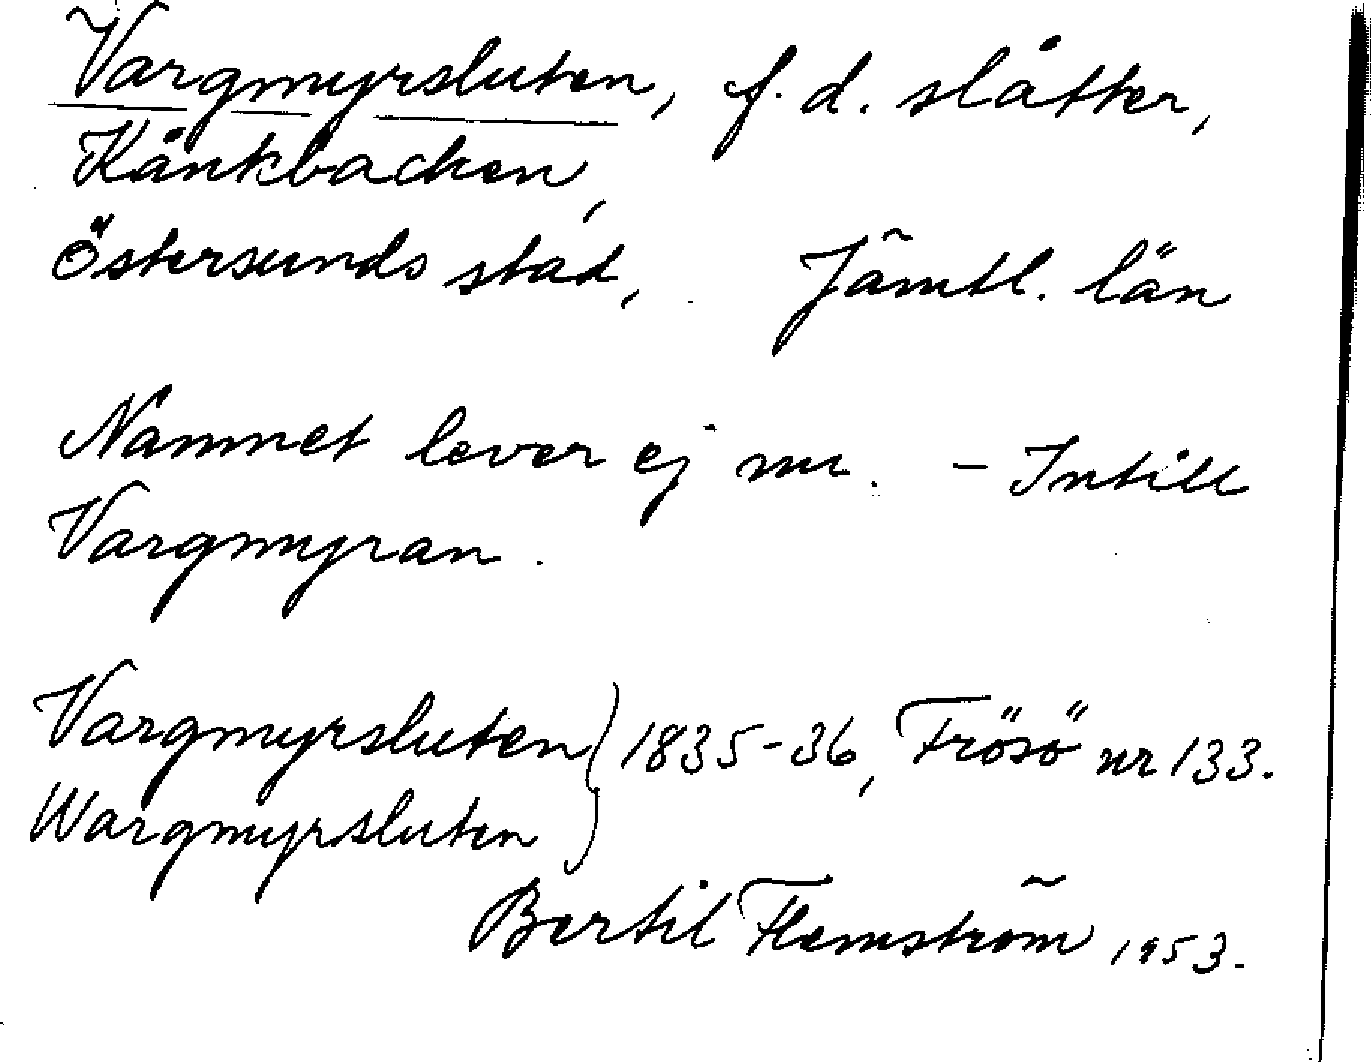 Vargmyrsluten, f.d. slåtter,
Kånkbacken,
Östersunds stad, Jämtl. län
Namnet lever ej nu. - Intill
Vargmyran.
Vargmyrsluten } 1835-36, Frösö nr 133.
Wargmyrsluten
Bertil Flemström 1953.